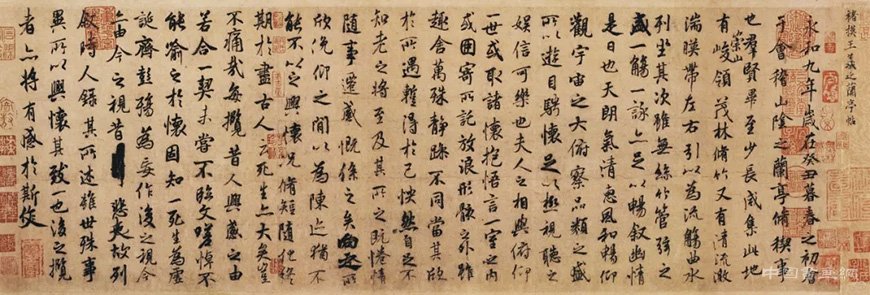 褚摸王羲之蘭亭帖
永和九年歲在癸丑暮春之初會
于會稽山陰之蘭亭脩稧事
也群賢畢至少長咸集此地
有崇山峻領茂林脩竹又有清流激
湍暎帶左右引以為流觴曲水
列坐其次雖無絲竹管弦之
盛一觴一詠亦足以暢叙幽情
是日也天朗氣清惠風和暢仰
觀宇宙之大俯察品類之盛
所以遊目騁懷足以極視聽之
娛信可樂也夫人之相與俯仰
一世或取諸懷抱悟言一室之內
或因寄所託放浪形骸之外雖
趣舍萬殊静躁不同當其欣
於所遇蹔得於己怏然自足不
知老之將至及其所之既惓情
隨事遷感慨係之矣向之所
欣俛仰之間以為陳迹猶不
能不以之興懷況脩短隨化終
期於盡古人云死生亦大矣豈
不痛哉每攬昔人興感之由
若合一契未嘗不臨文嗟悼不
能喻之於懷固知一死生為虛
誕齊彭殤為妄作後之視今
亦由今之視昔悲夫故列
敘時人錄其所述雖世殊事
異所以興懷其致一也後之攬
者亦將有感於斯文